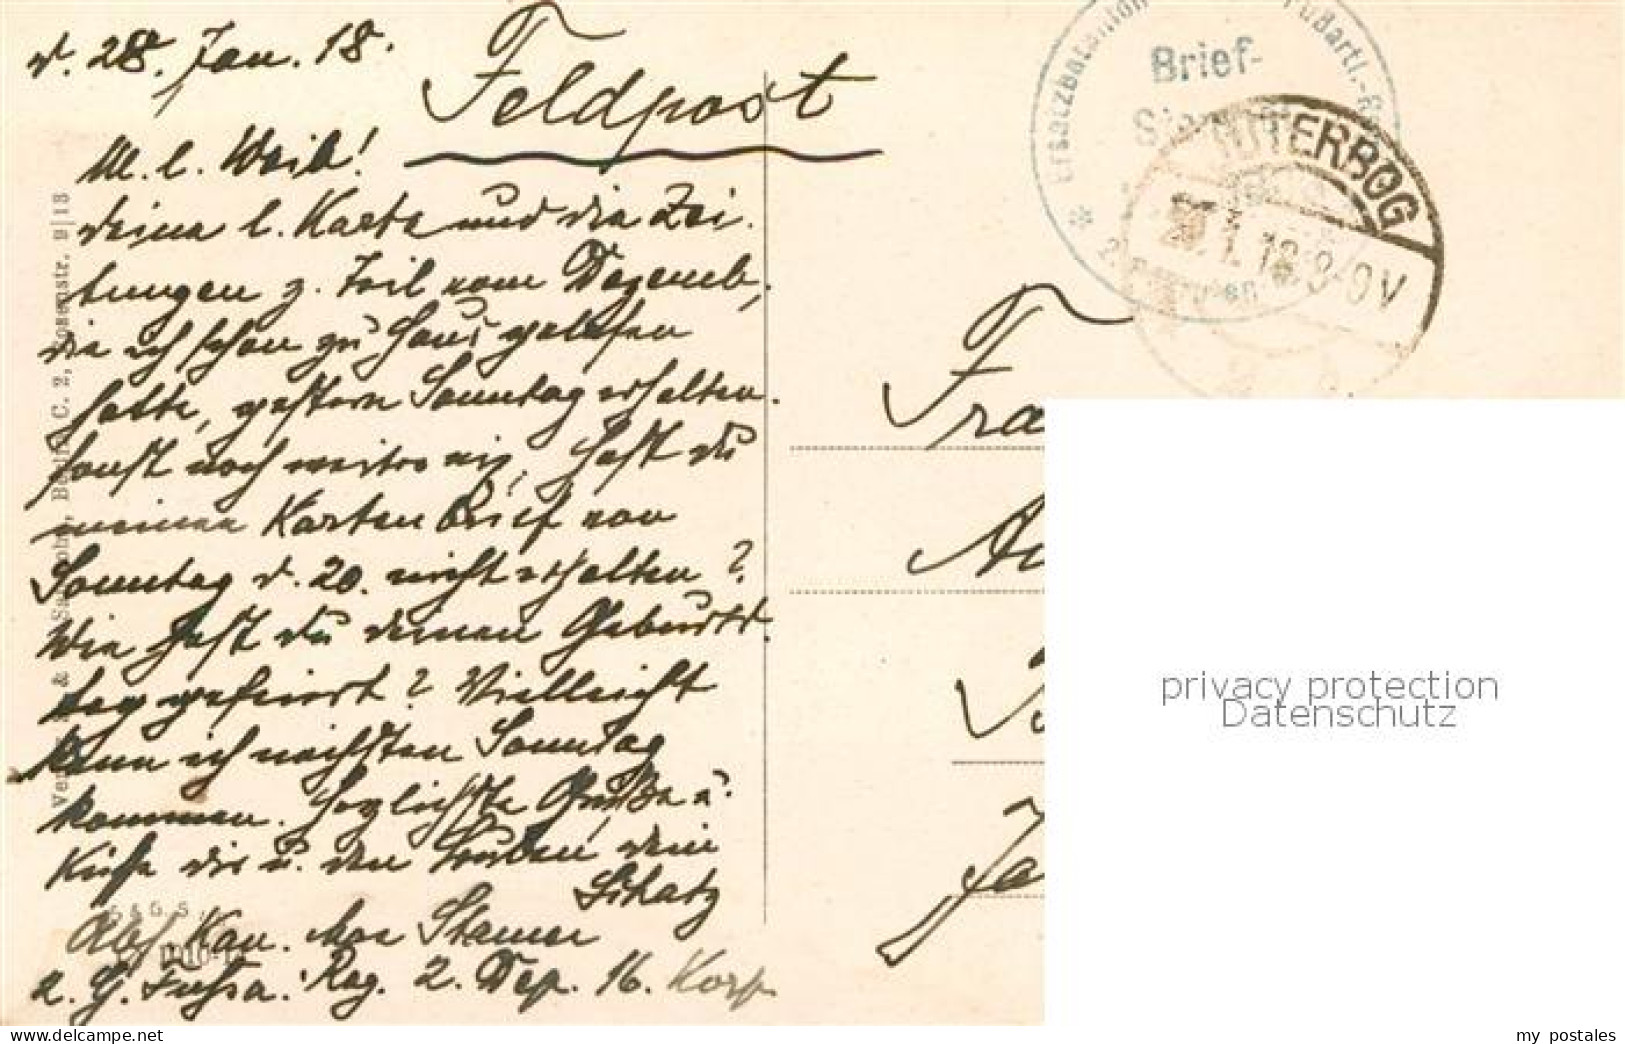 d. 28. Jan. 18.
Feldpost
M. l. Weib!
deine l. Karte und die Zei-
tungen z. Teil vom Dezemb,
die ich schon zu Haus gelesen
hatte, gestern Sonntag erhalten.
sonst noch weiter nix. Hast du
meinen Kartenbrief von
Sonntag d. 20. nicht erhalten?
Wie hast du deinen Geburts-
tag gefeiert? Vielleicht
kann ich nächsten Sonntag
kommen. Herzlichste Grüße u.
Küsse dir u. den Buben dein
Schatz
Abs. Kan. Max Stamm
2. G. Fussa. Reg. 2. Dep. 16. Korp
Ersatzbataillon Fußartl.-
Brief-
JÜTERBOG
1.18.8-9V
Fra
Au
Ja
Berlin C. 2, Rosenstr. 9|13
privacy protection
Datenschutz
my postales